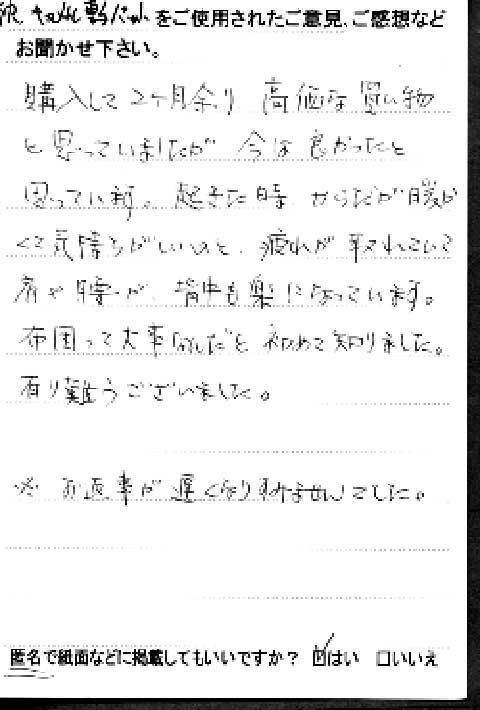 をご使用されたご意見、ご感想など
お聞かせ下さい。
購入して2ヶ月余り 高価な買い物
と思っていましたが 今は良かったと
思っています。起きた時 からだが暖か
くて気持ちがいいのと、疲れが取れていて
肩や腰が、背中も楽になっています。
布団って大事なんだと初めて知りました。
有り難うございました。
※ お返事が遅くなりすみませんでした。
匿名で紙面などに掲載してもいいですか? ☑はい □いいえ